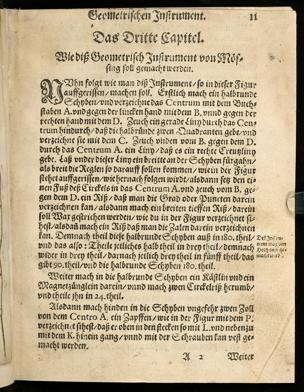 Geometrischen Instrument. 11
Das Dritte Capitel.
Wie diß Geometrisch Instrument von Mös-
sing soll gemacht werden.
NVhn folgt wie man diß Instrument / so in dieser Figur
auffgerissen / machen soll. Erstlich mach ein halbrunde
Schyben / vnd verzeichne das Centrum mit dem Buch-
staben A. vnd gegen der lincken hand mit dem B. vnnd gegen der
rechten hand mit dem D. Zeuch ein gerade Liny durch das Cen-
trum hindurch / daß die halbrunde zwen Quadranten gebe / vnd
verzeichne sie mit dem C. Zeuch vnden vom B. gegen dem D.
durch das Centrum A. ein Liny / daß es ein rechte Creutzliny
gebe. Laß vnder dieser Liny ein breitte an der Schyben fürgahn /
als breit die Reglen so darauff sollen kommen / wie in der Figur
stehet auffgerissen / wie hernach folgen wirdt / alsdann setz den ei-
nen Fuß deß Circkels in das Centrum A. vnd zeuch vom B. ge-
gen dem D. ein Riß / daß man die Grad oder Puncten darein
verzeichnen kan / alsdann mach ein breiten tieffen Riß / darein
soll War gestrichen werden / wie du in der Figur verzeichnet si-
hest / alsdañ mach ein Riß daß man die Zalen darein verzeichnen
kan. Demnach theil diese halbrunde Schyben auß in 180. theil,
vnd das also: Theile jetliches halb theil in drey theil / demnach
wider in drey theil / darnach jetlich theil in fünff theil / das
gibt 90. theil / vnd die halbrunde Schyben 180. theil.
Weiter mach in die halbrunde Schyben ein Kästlin vnd ein
Magnetzünglein darein / vnnd mach zwen Circkelriß herumb /
vnd theile jhn in 24. theil.
Alsdann mach hinden in die Schyben vngefehr zwen Zoll
von dem Centro A. ein Zapffen / wie in der Figur mit dem P.
verzeichnet sihest / daß er oben in den stecken so mit L. vnd neben zu
mit dem K. hinein gang / vnnd mit der Schrauben fan vest ge-
macht werden.
A 2 Weiter